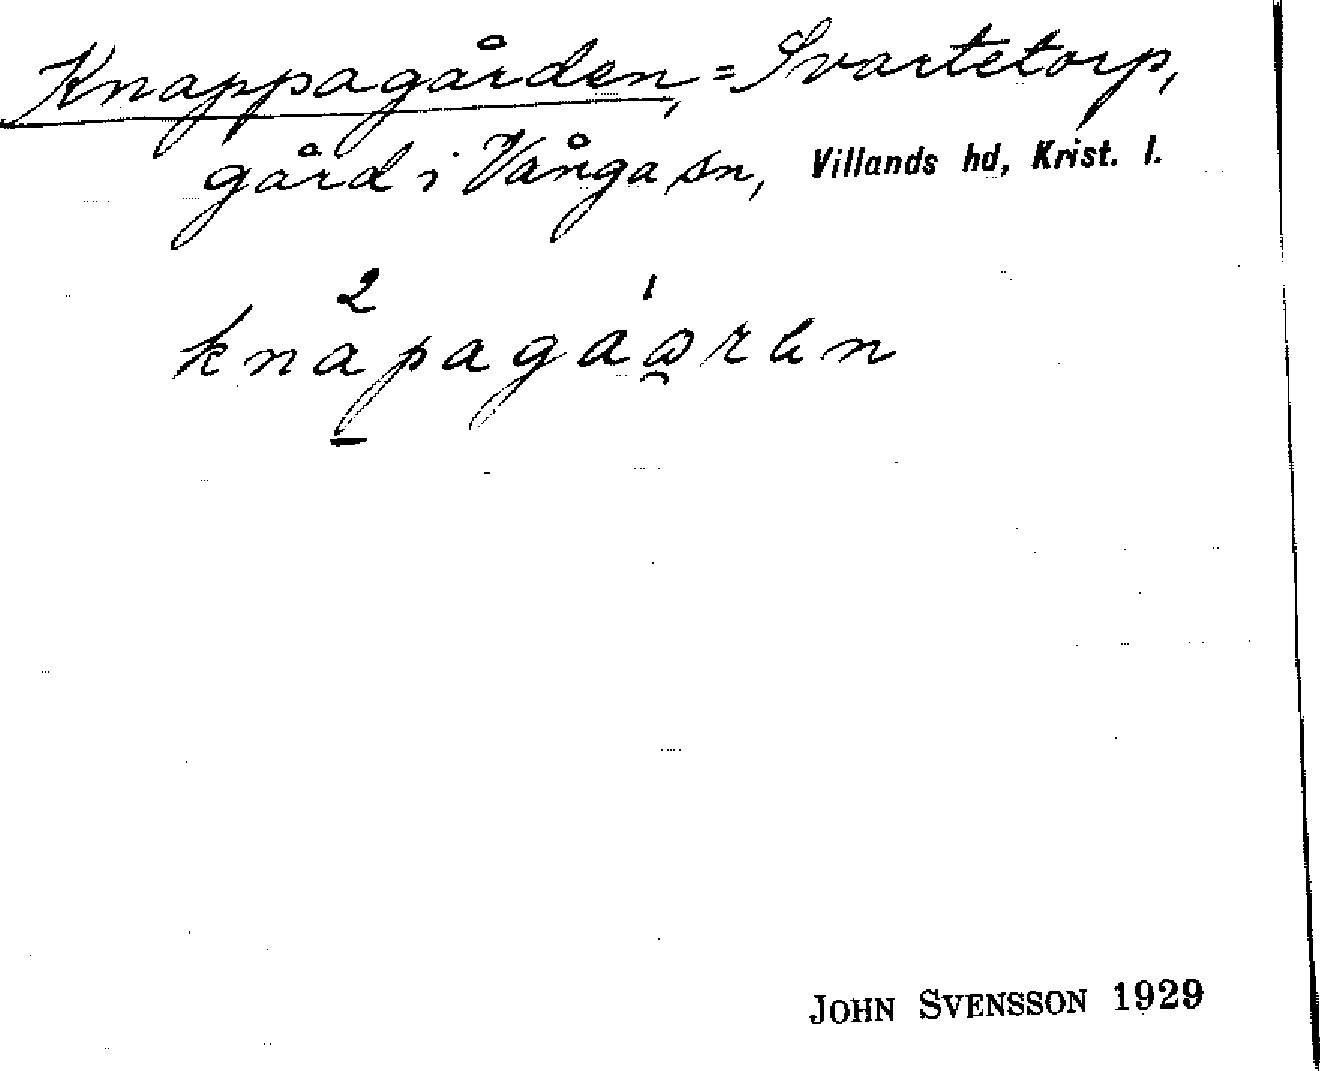 Knappagården, = Svartetorp,
gård i Vånga sn, Villands hd, Krist. l.
2 1
knapagáaren
JOHN SVENSSON 1929